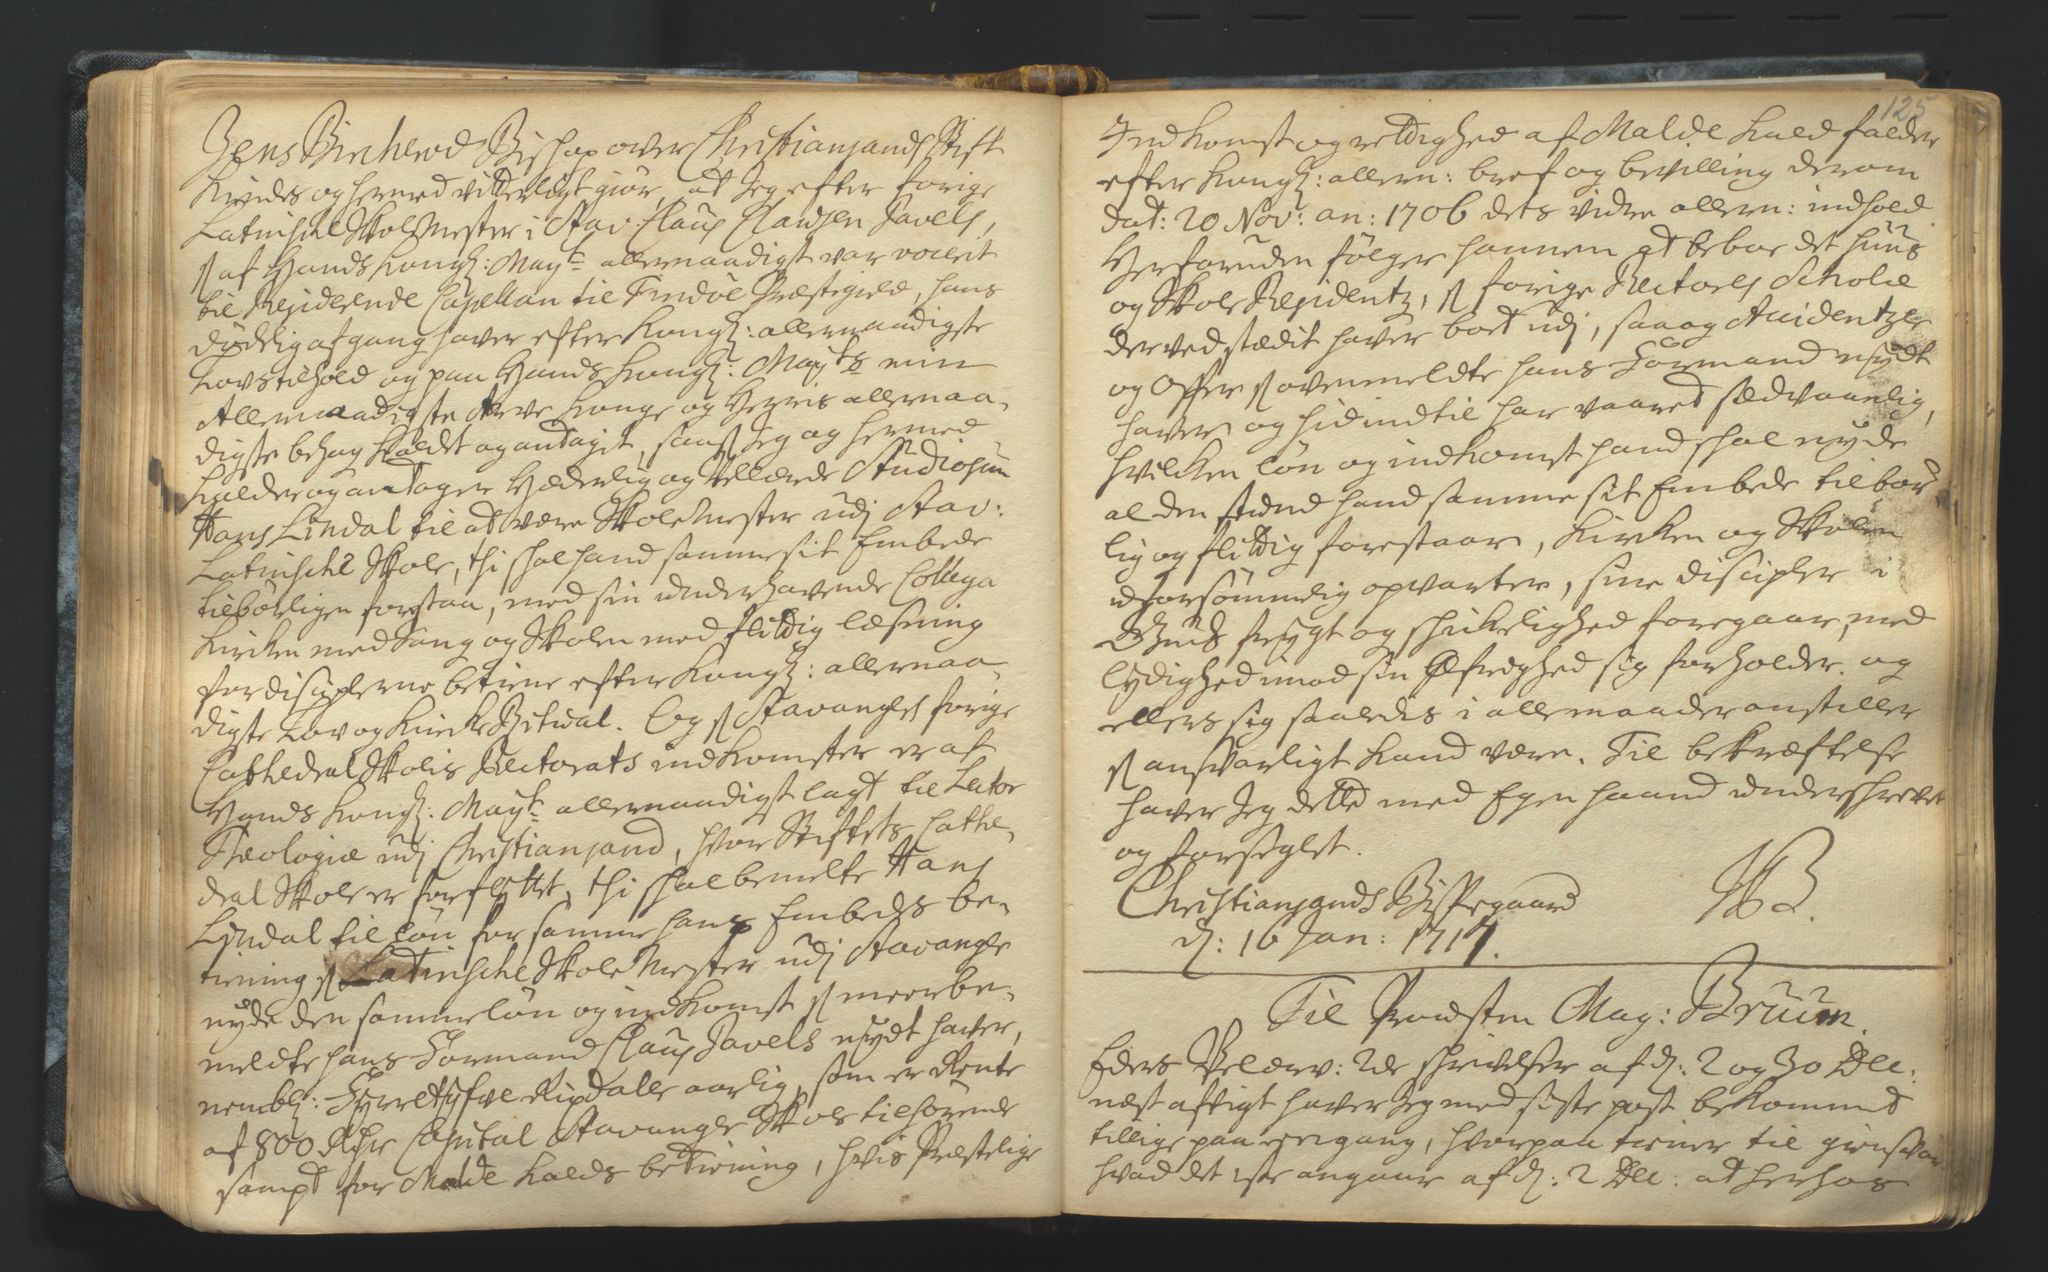 Jens Bircherod Bischop over Christiansands Stift
Kiendes og hermed vitterligt giør, at Jeg efter forige
Latinsche SkoleMester i Stav: Claus Clausen Pavels,
af Hands Kongl: Mayt allernaadigst var voceret
til Residerende Capellan til Findøe Præstegield, hans
dødelig afgang haver efter Kongl: allernaadigste
Lovs tilhold og paa Hands Kongl: Mayts min
Allernaadigste Arve Konge og Herris allernaa-
digste behag kaldet og antaget, saasom Jeg og hermed
kalder og antager Hæderlig og Vellærde Studiosum
Hans Lindal til at være SkoleMester udj Stav:
Latinsche Skole, thi skal hand samme sit Embede
tilbørligen forestaa, med sin underhavende Collega
Kircken med Sang og Skolen med flittig læsning
for disciplerne betiene efter Kongl: allernaa-
digste Lov og Kircke Ritual. Og Stavangers forige
Cathedral Skolis Rectorats indkomster er af
Hands Kongl: Mayt: allernaadigst lagt til Lector
Theologiæ udj Christiansand, hvor Stiftets Cathe-
dral Skole er forflyttet, thi skal bemelte Hans
Lindal til løn for samme hans Embeds be-
tiening Latinsche SkoleMester udj Stavanger
nyde den samme løn og indkomst meerbe-
meldte hans Formand Claus Pavels nydt haver,
nembl: Fyrretyfve Rixdaller aarlig, som er Rente
af 800 Rdr Capital Stavanger Skole tilhørende
sampt for Malde kalds betiening, hvis Præstelige
125
Indkomst og rettighed af Malde kald falder
efter Kongl: allern: bref og bevilling derom
dat: 20 Nov: an: 1706 dets videre allern: indhold
Herforuden følger hannem at beboe det huus
og Skole Residentz, forige Rectores Scholæ
derved stædet haver boet udj, saa og Accidentzer
og Offer ovenmeldte hans Formand nydt
haver og hid indtil har vaaret sædvaanlig,
hvilken løn og indkomst hand skal nyde
al den stund hand samme sit Embede tilbør-
lig og flittig forestaar, Kircken og Skolen
uforsømmelig opvarter, sine discipler i
Guds frygt og skikelighed foregaar, med
lydighed imod sin Øfrighed sig forholder og
ellers sig saaledes i alle maader anstiller
ansvarligt kand være. Til bekræftelse
haver Jeg dette med Egen haand underskrevet
og forseglet.
Christiansands Bispegaard JB.
d: 16 Jan: 1717.
Til Provsten Mag: Bruun.
Eders Velærv: 2de skrivelser af d: 2 og 30 Dec:
næst afvigt haver Jeg med siste post bekommet
tillige paa een gang, hvorpaa tiener til giensvar
hvad det iste angaar af d: 2 Dec: at herhos